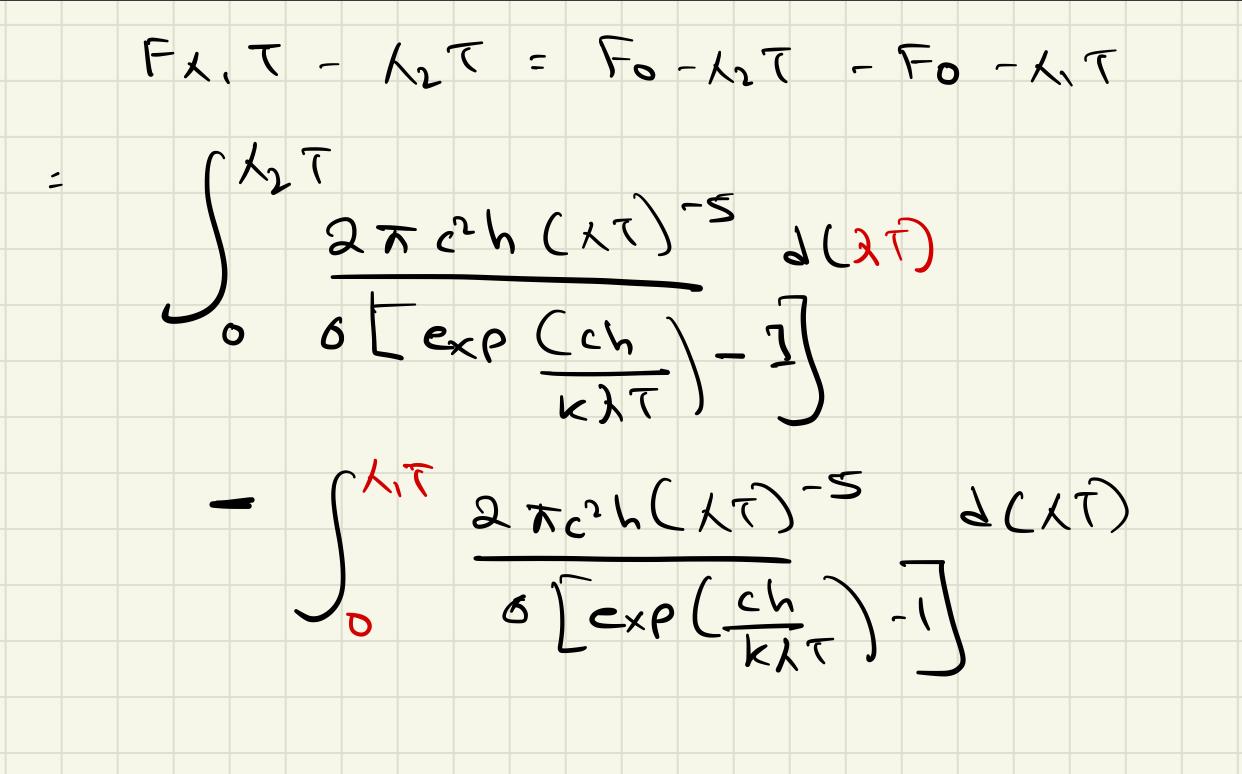 Fλ₁T - λ₂T = F₀ - λ₂T - F₀ - λ₁T
= ∫₀^{λ₂T} \frac{2πc²h(λT)⁻⁵}{σ[exp(\frac{ch}{kλT}) - 1]} d(λT)
- ∫₀^{λ₁T} \frac{2πc²h(λT)⁻⁵}{σ[exp(\frac{ch}{kλT}) - 1]} d(λT)